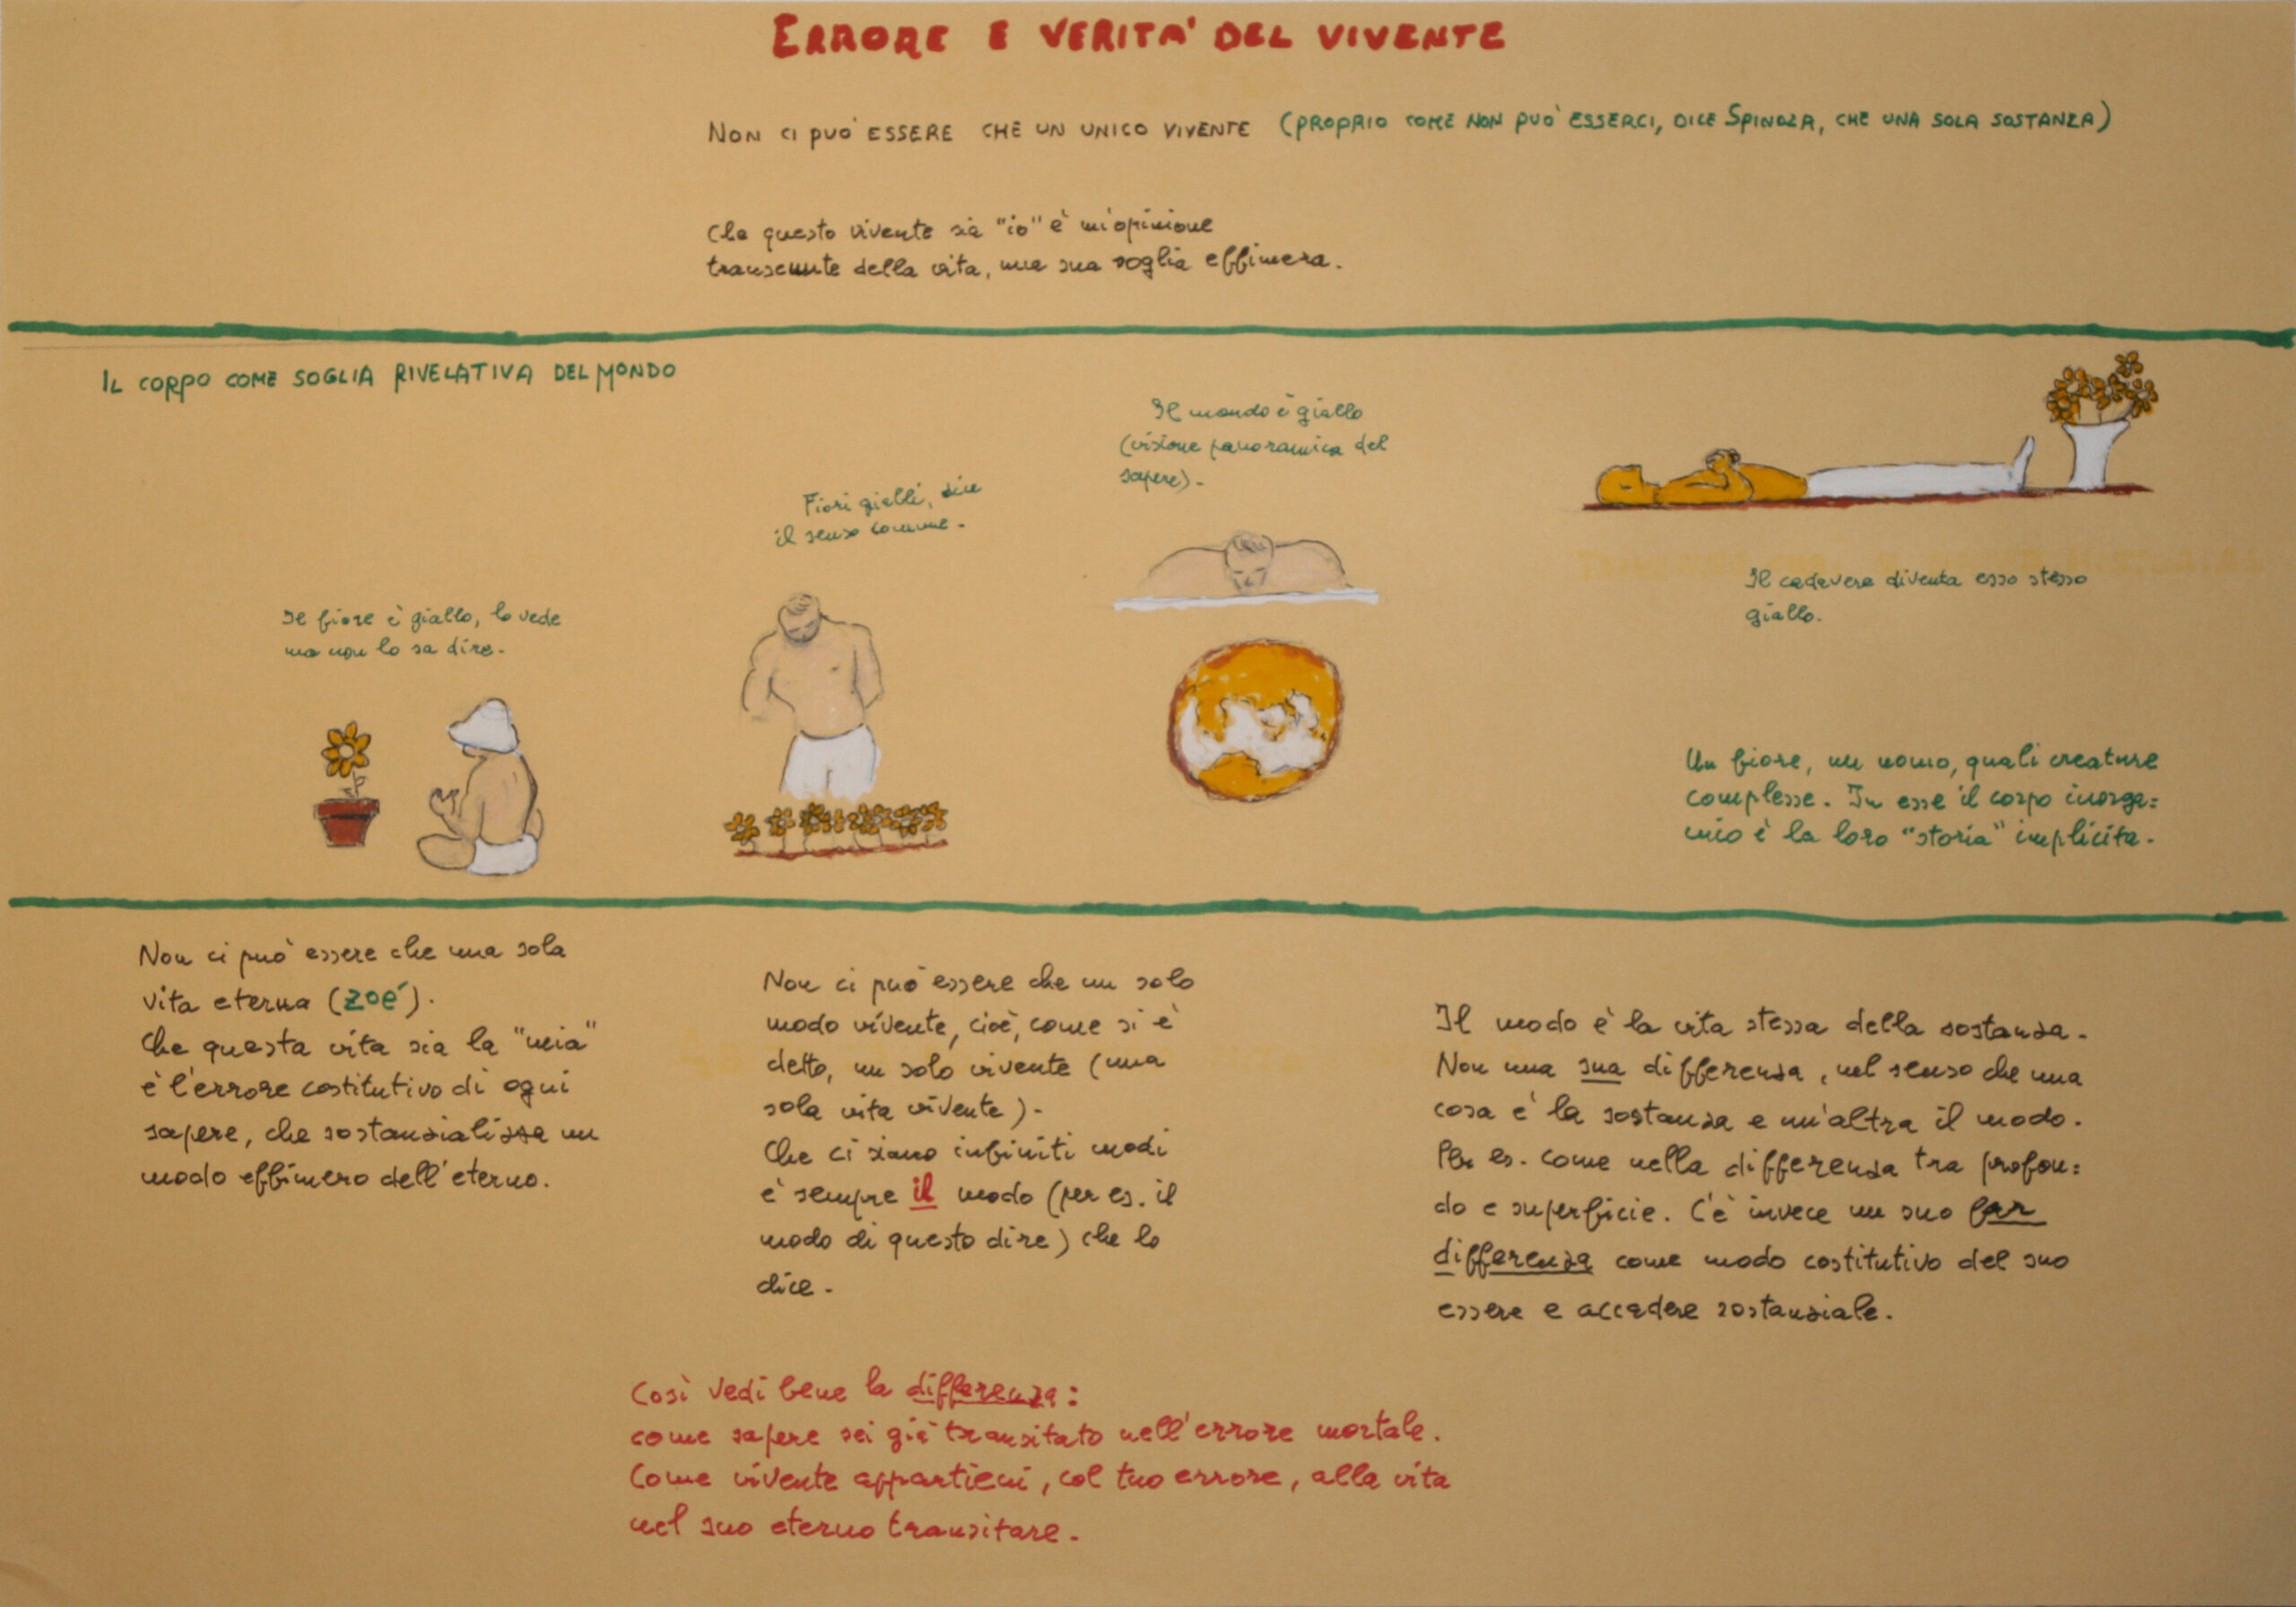 ERRORE E VERITA' DEL VIVENTE
NON CI PUO' ESSERE CHE UN UNICO VIVENTE (PROPRIO COME NON PUO' ESSERCI, DICE SPINOZA, CHE UNA SOLA SOSTANZA)
Che questo vivente sia "io" è un'opinione
transeunte della vita, una sua soglia effimera.
IL CORPO COME SOGLIA RIVELATIVA DEL MONDO
Il fiore è giallo, lo vede
ma non lo sa dire.
Fiori gialli, dice
il senso comune.
Il mondo è giallo
(visione panoramica del
sapere).
Il cadavere diventa esso stesso
giallo.
Un fiore, un uomo, quali creature
complesse. In esse il corpo inorga=
nico è la loro "storia" implicita.
Non ci può essere che una sola
vita eterna (zoé).
Che questa vita sia la "mia"
è l'errore costitutivo di ogni
sapere, che sostanzializza un
modo effimero dell'eterno.
Non ci può essere che un solo
modo vivente, cioè, come si è
detto, un solo vivente (una
sola vita vivente).
Che ci siano infiniti modi
è sempre il modo (per es. il
modo di questo dire) che lo
dice.
Il modo è la vita stessa della sostanza.
Non una sua differenza, nel senso che una
cosa è la sostanza e un'altra il modo.
Per es. come nella differenza tra profon=
do e superficie. C'è invece un suo far
differenza come modo costitutivo del suo
essere e accadere sostanziale.
Così vedi bene la differenza:
come sapere sei già transitato nell'errore mortale.
Come vivente appartieni, col tuo errore, alla vita
nel suo eterno transitare.